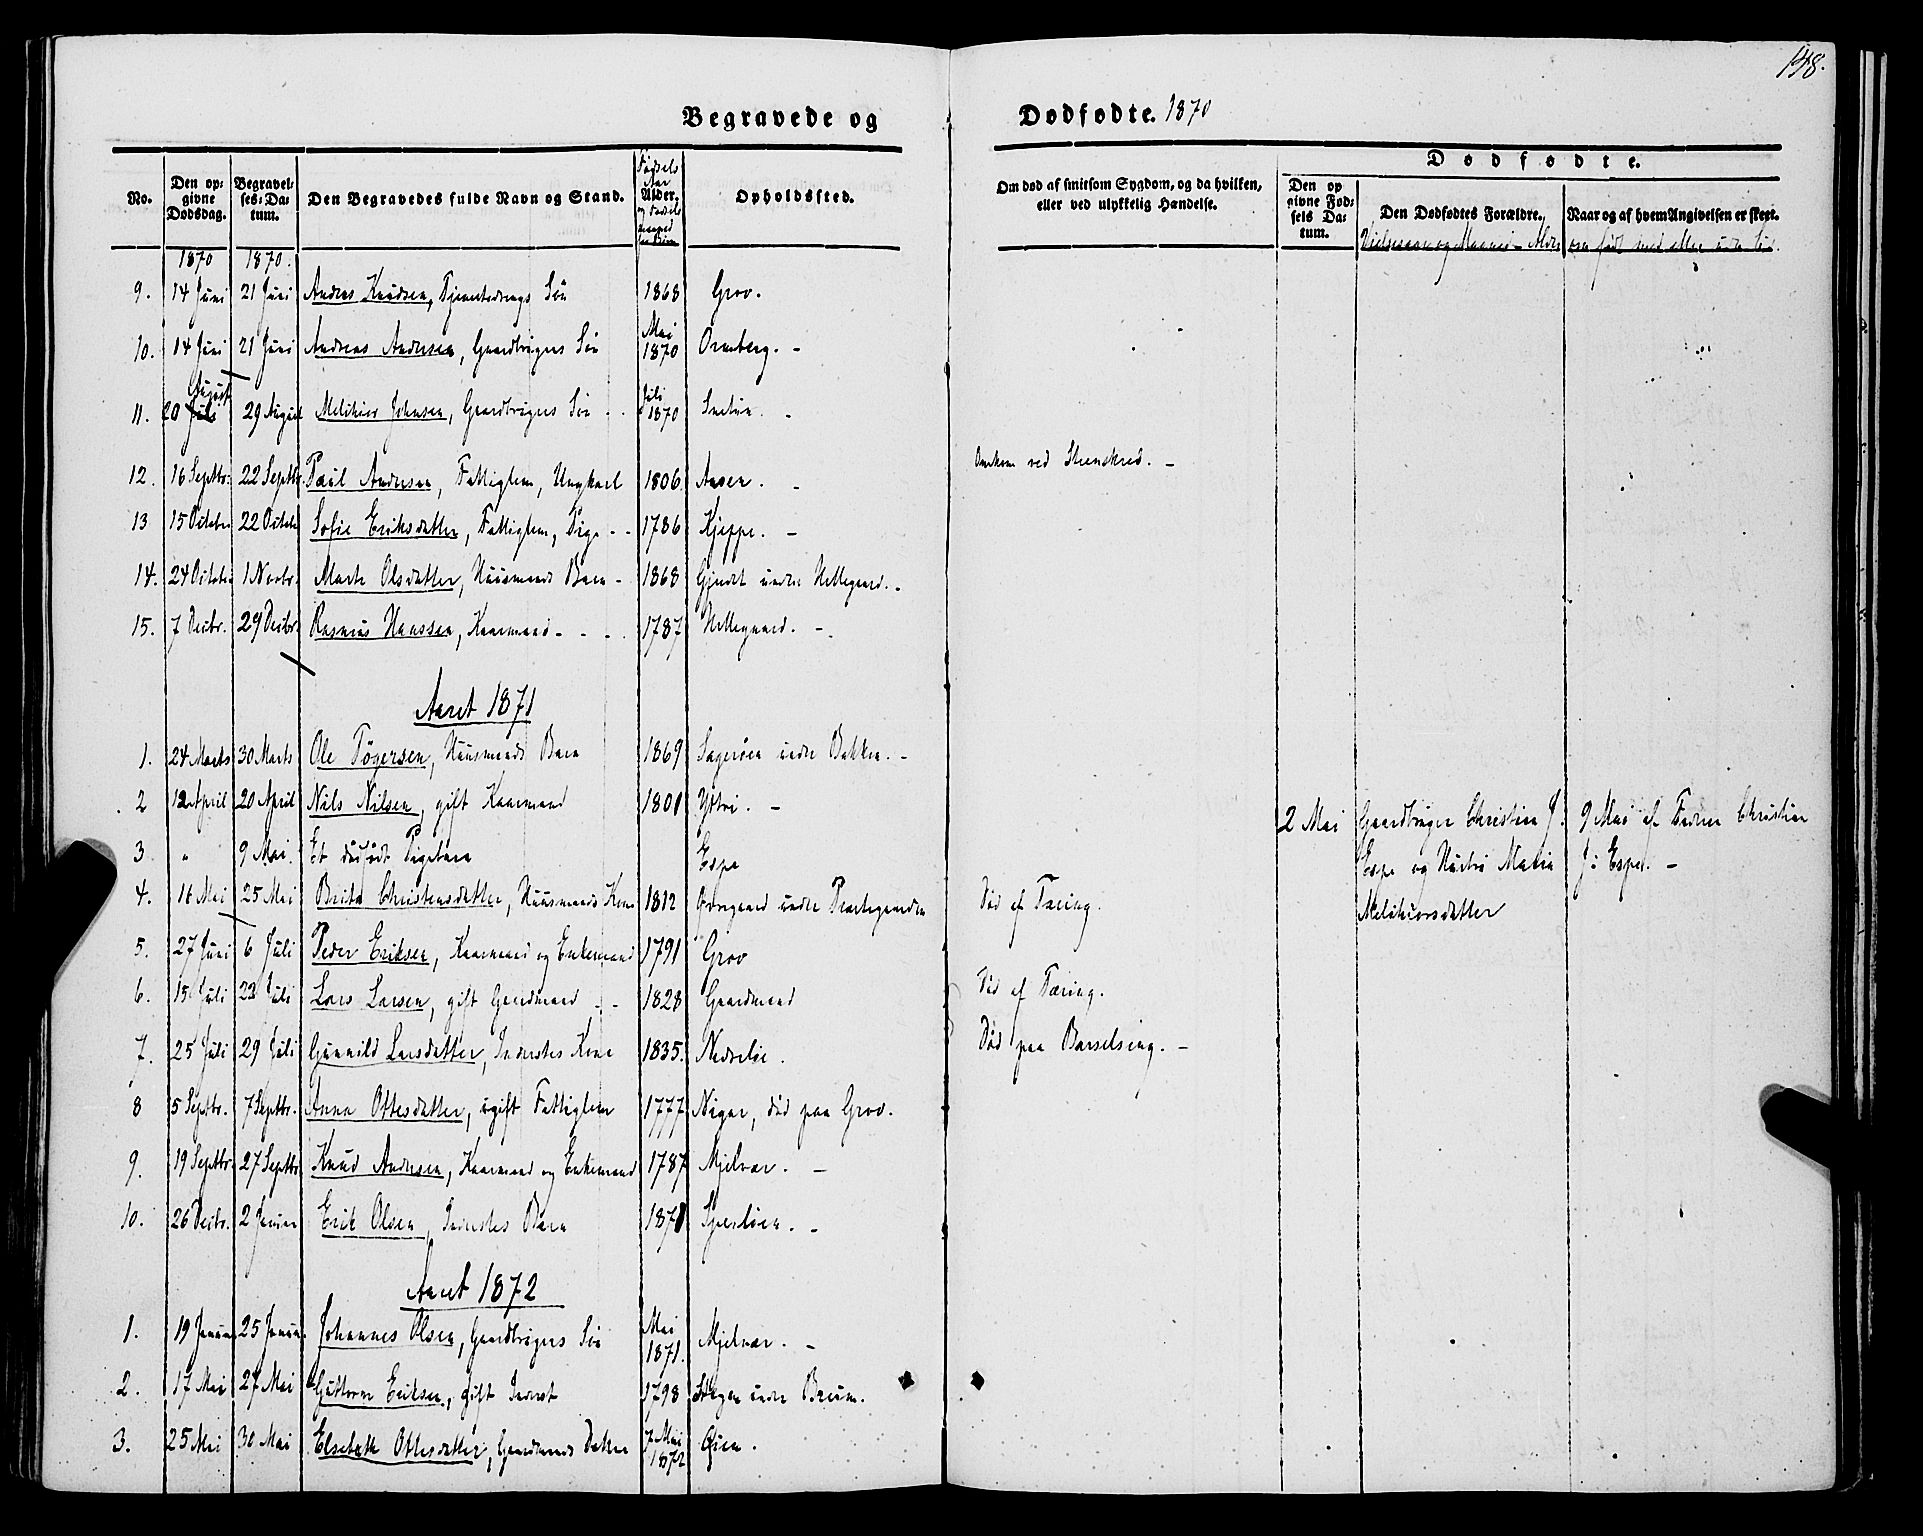 148.
Begravede og Dødfødte. 1870
No.
Den opgivne Dødsdag.
Begravelses-Datum.
Den Begravedes fulde Navn og Stand.
Fødsels Aar
Alder.
Opholdssted.
Om død af smitsom Sygdom, og da hvilken, eller ved ulykkelig Hændelse.
Dødfødte.
Den opgivne Fødsels Datum.
Den Dødfødtes Forældre.
Naar og af hvem Angivelsen er skeet.
1870 1870.
9. 14 Juni 21 Juni Andres Knudsen, Tjenestedrengs Søn 1868 Grov.
10. 14 Juni 21 Juni Andreas Andersen, Gaardbrugers Søn Mai 1870 Ormberg. -
11. 20 August 29 August Melchior Johnsen, Gaardbrugers Søn - - Juli 1870
12. 16 Septbr. 22 Septbr. Paul Andersen, Fattiglem, Ungkarl 1806. Aasen. - Omkom ved Steenskred. -
13 15 Octobr 22 Octobr Sofie Eriksdatter, Fattiglem, Pige - - 1786 Kjeppe. -
14. 24 Octobr 1 Novbr. Marte Olsdatter, Huusmands Barn - 1868 Gjerdet under Hellegaard. -
15. 7 Decbr. 29 Decbr. Rasmus Hanssen, Kaarmand - - - 1787 Hellegaard. -
Aaret 1871
1. 24 Marts 30 Marts Ole Tøgersen, Huusmands Barn 1869 under Bakken. -
2 12 April 20 April Nils Nilsen, gift Kaarmand 1801 Ytri. -
3. " 9 Mai. Et dødfødt Pigebarn Espe 2 Mai Gaardbruger Christian J. Espe og Hustru Maria Melchiorsdatter 9 Mai af Faderen Christian J. Espe. -
4. 16 Mai 25 Mai Brita Christensdatter, Huusmands Kone 1812 Øvregaard under Præstegaarden Død af Tæring.
5. 27 Juni 6 Juli Peder Eriksen, Kaarmand og Enkemand 1791 Grov
6. 15 Juli 23 Juli Lars Larsen, gift Gaardmand - - 1828 Gaardmand Død af Tæring.
7. 25 Juli 29 Juli Gunnild Larsdatter, Inderstes Kone 1835. Nedrelie. Død paa Barselseng. -
8 5 Septbr. 7 Septbr. Anna Ottesdatter, ugift Fattiglem 1777 Nigar, død paa Grov.
9. 19 Septbr. 27 Septbr Knud Andersen, Kaarmand og Enkemand 1787 Mjelvar. -
10. 26 Decbr. 2 Januar Erik Olsen, Inderstes Barn 1871
Aaret 1872
1. 19 Januar 25 Januar Johannes Olsen, Gaardbrugers Søn Mai 1871. Mjelvar. -
2. 17 Mai 27 Mai Guttorm Eriksen, gift Inderst 1798 Hagen under Breum.
3. 25 Mai 30 Mai Elsebeth Ottesdatter, Gaardmands Datter 7 Mai 1872 Øien.